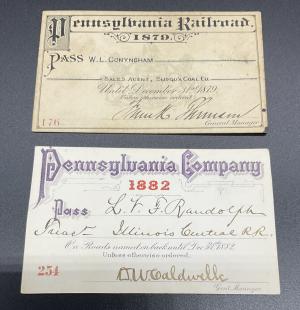 Pennsylvania Railroad.
1879.
PASS W. L. CONYNGHAM
SALES AGENT, SUSQ'A COAL CO.
Until December 31st 1879
Unless otherwise ordered
Frank Thomson
General Manager.
176
Pennsylvania Company
1882
Pass L. V. F. Randolph
Treas'r Illinois Central R.R.
On Roads named on back until Dec 31st 1882.
Unless otherwise ordered.
254
D. W. Caldwell
Genl. Manager.